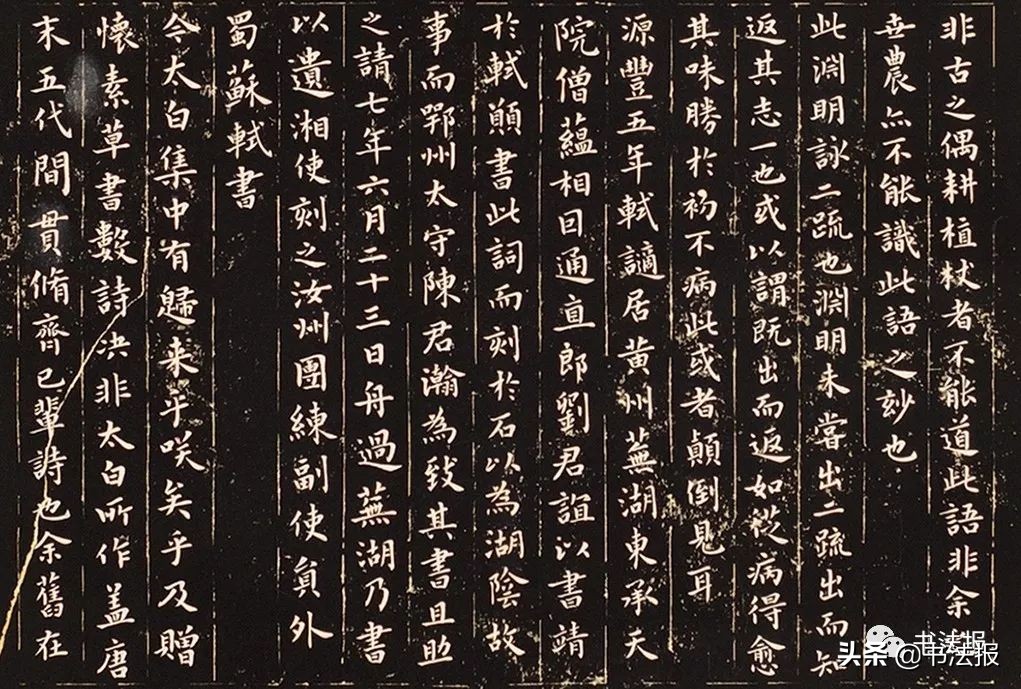 非古之偶耕植杖者不能道此語非余
世農亦不能識此語之玅也
此淵明詠二疏也淵明未嘗出二疏出而知
返其志一也或以謂既出而返如從病得愈
其味勝於初不病此或者顛倒見耳
源豐五年軾謫居黃州蕪湖東承天
院僧蘊相因通直郎劉君誼以書請
於軾願書此詞而刻於石以為湖陰故
事而鄂州太守陳君瀚為致其書且助
之請七年六月二十三日舟過蕪湖乃書
以遺湘使刻之汝州團練副使員外
蜀蘇軾書
今太白集中有歸来乎咲矣乎及贈
懷素草書數詩决非太白所作盖唐
末五代間貫脩齊己輩詩也余舊在
书法报
头条@书法报